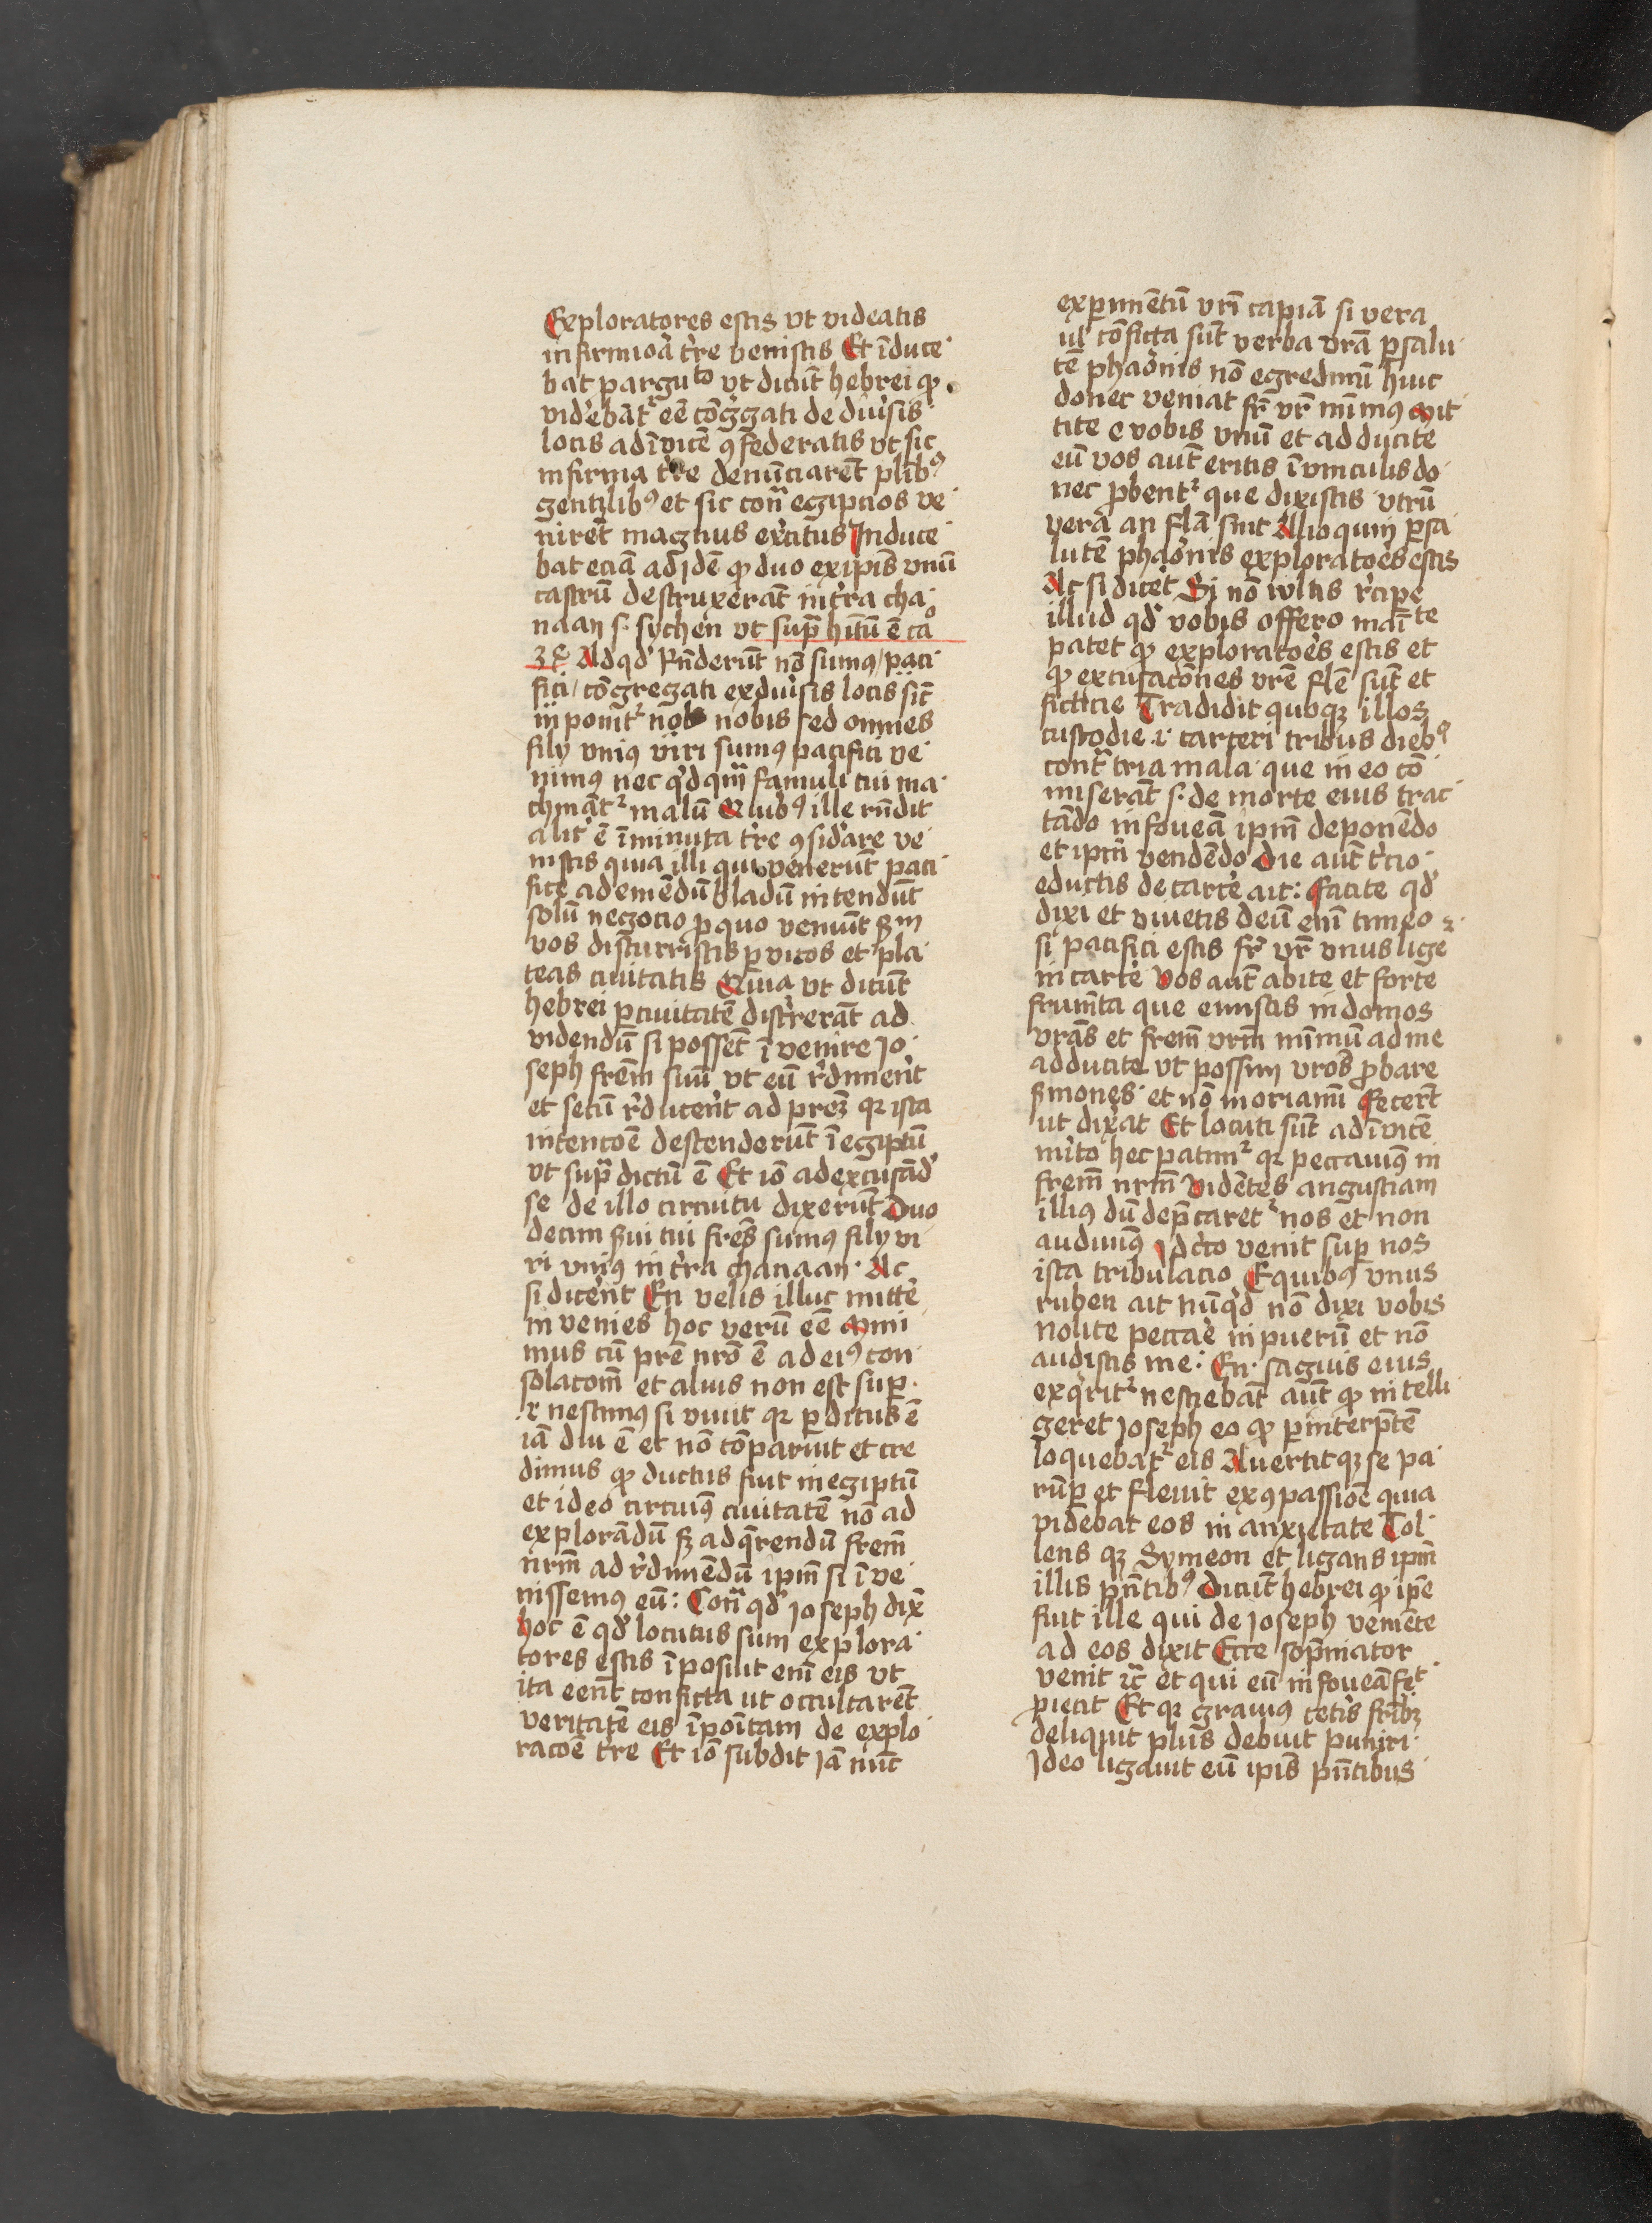 Exploratores estis vt videatis
infirmioā t͛re venistis Et īduce
bat parguto vt dicūt hebrei ꝙ
videbāt᷑ eē cōg͛gati de diu͛sis
locis ad īvicē ꝯfederatis vt sic
infirma t͛re denūciarēt plib᷒
gentilib᷒ et sic con̄ egiptios ve
nirēt magnus ex͛citus Induce
bat eciā ad idē ꝙ duo ex ip̄is vnū
castrū destruxerāt in t͛ra cha
naan s. sychen vt sup͛ hītū ē caº
34 Ad qd͛ Rn̄derūt nō sumꝰ / paci
fici / cōgregati ex diu͛sis locis sic̄
inponit᷑ nobis sed omnes
filij vniꝰ viri sumꝰ pacifici ve
nimꝰ nec qͥdqͣm famuli tui ma
chināt᷑ malū Quibꝰ ille rn̄dit
alit͛ ē īminuta t͛re ꝯsid͛are ve
nistis quia illi qui venerūt paci
fice ad emēdū bladū intendūt
solū negocio ꝓ quo veniūt sꝫ
vos discurristis ꝑ vicos et pla
teas ciuitatis Quia vt dicūt
hebrei ꝑ ciuitatē disc͛rerāt ad
videndū si possēt īvenire Jo
seph frēm suū vt eū r͛dimerēt
et secū r͛ducerēt ad prēꝫ qꝛ ista
intencōe descenderūt ī egiptū
vt supͣ dictū ē Et iō ad excusād͛
se de illo circuitu dixerūt Duo
decim sui tui frēs sumꝰ filij vi
ri vniꝰ in t͛ra chanaan. Ac
si dicerēt En velis illuc mitte͛
in venies hoc verū eē Mini
mus cū prē nrō ē ad eiꝰ con
solacōm̄ et alius non est sup.
.i. nescimꝰ si viuit qꝛ ꝑditus ē
iā diu ē et nō cōparuit et cre
dimus ꝙ ductus fuit in egiptū
et ideo circuiꝰ ciuitatē nō ad
explorādū sꝫ ad q͛rendū frem̄
nrm̄ ad r͛dimēdū ip̄m si īve
nissemꝰ eū: Conͣ qd͛ Joseph dix͛
hoc ē qd͛ locutus sum explora
tores estis īposuit enī eis vt
ita eēnt conficta ut occultarēt
veritatē eis īpoītam de explo
racōe t͛re Et iō subdit Jā nūc
experimētū vrī capiā si vera
ul͛ cōficta sūt verba vrā ꝑ salu
tē pharōnis nō egredimī hinc
donec veniat fr͛ vr͛ mīmꝰ Mit
tite e vobis vnū et adducite
eū vos aūt eritis ī vinculis do
nec ꝓbent᷑ que dixistis vtrū
vera an flā sint Alioquin ꝑ sa
lutē pharōnis exploratoēs estis
Ac si dicet͛ Si nō vultis r͛cipe͛
illud qd͛ vobis offero maīte
patet ꝙ exploratoēs estis et
ꝙ excusacōnes vrē flē sūt et
ficticie Tradidit quoqꝫ illos
custodie .i. carceri tribus dieb᷒
contͣ tria mala que in eo cō
miserāt s. de morte eius trac
tādo in foueā ip̄m deponēdo
et ip̄m vendēdo Die aūt t͛cio
eductis de carce͛ ait: Facite qd͛
dixi et viuetis deū enī timeo
si pacifici estis fr͛ vr͛ vnus lige͛
in carce͛ Vos aūt abite et ferte
frum̄ta que emistis in domos
vrās et frem̄ vrm̄ mīmū ad me
adducite vt possim vros ꝓbare
smones et nō moriamī Fecert͛
ut dix͛at Et locuti sūt ad īvicē
mīto hec patim᷑ qꝛ peccauimꝰ in
frem̄ nrm̄ Vidētes angustiam
illiꝰ dū dep̄caret᷑ nos et non
audiuimꝰ Idc͛co venit sup nos
ista tribulacio E quibꝰ vnus
ruben ait nūqͥd nō dixi vobis
nolite pecca͛e in puerū et nō
audistis me: En saguis eius
exqͥrit᷑ nesciebāt aūt ꝙ intelli
geret Joseph eo ꝙ ꝑ interp͛tē
loquebat᷑ eis Auertitqꝫ se pa
rūꝑ et fleuit ex ꝯpassioē quia
videbat eos in anxietate Tol
lens qꝫ Symeon et ligans ip̄m
illis pn̄tib᷒ Dicūt hebrei ꝙ ip̄e
fuit ille qui de Joseph veniēte
ad eos dixit Ecce sop̄niator
venit ic͛ et qui eū in foueā
piecit Et qꝛ grauiꝰ cetis frībꝫ
deliquit pluꝰ debuit puniri
Ideo ligauit eū ip̄is pn̄tibus